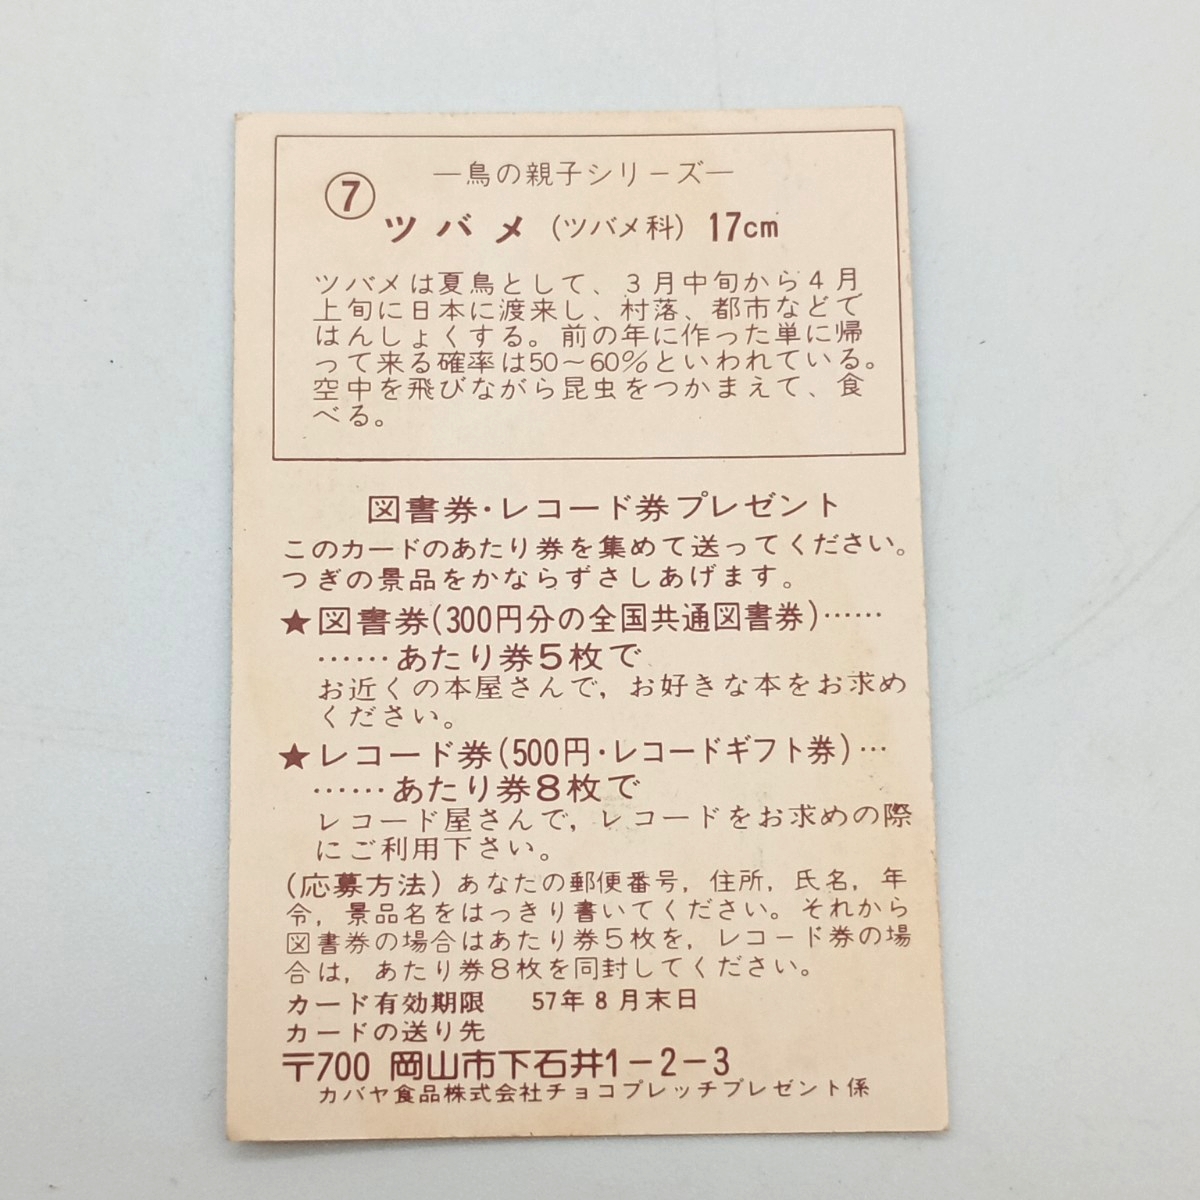 ―鳥の親子シリーズ―
⑦ ツバメ (ツバメ科) 17cm
ツバメは夏鳥として、3月中旬から4月
上旬に日本に渡来し、村落、都市などで
はんしょくする。前の年に作った単に帰
って来る確率は50~60%といわれている。
空中を飛びながら昆虫をつかまえて、食
べる。
図書券・レコード券プレゼント
このカードのあたり券を集めて送ってください。
つぎの景品をかならずさしあげます。
★図書券(300円分の全国共通図書券)……
……あたり券5枚で
お近くの本屋さんで,お好きな本をお求め
ください。
★レコード券(500円・レコードギフト券)…
……あたり券8枚で
レコード屋さんで,レコードをお求めの際
にご利用下さい。
(応募方法)あなたの郵便番号,住所,氏名,年
令,景品名をはっきり書いてください。それから
図書券の場合はあたり券5枚を,レコード券の場
合は,あたり券8枚を同封してください。
カード有効期限 57年8月末日
カードの送り先
〒700 岡山市下石井1-2-3
カバヤ食品株式会社チョコプレッチプレゼント係